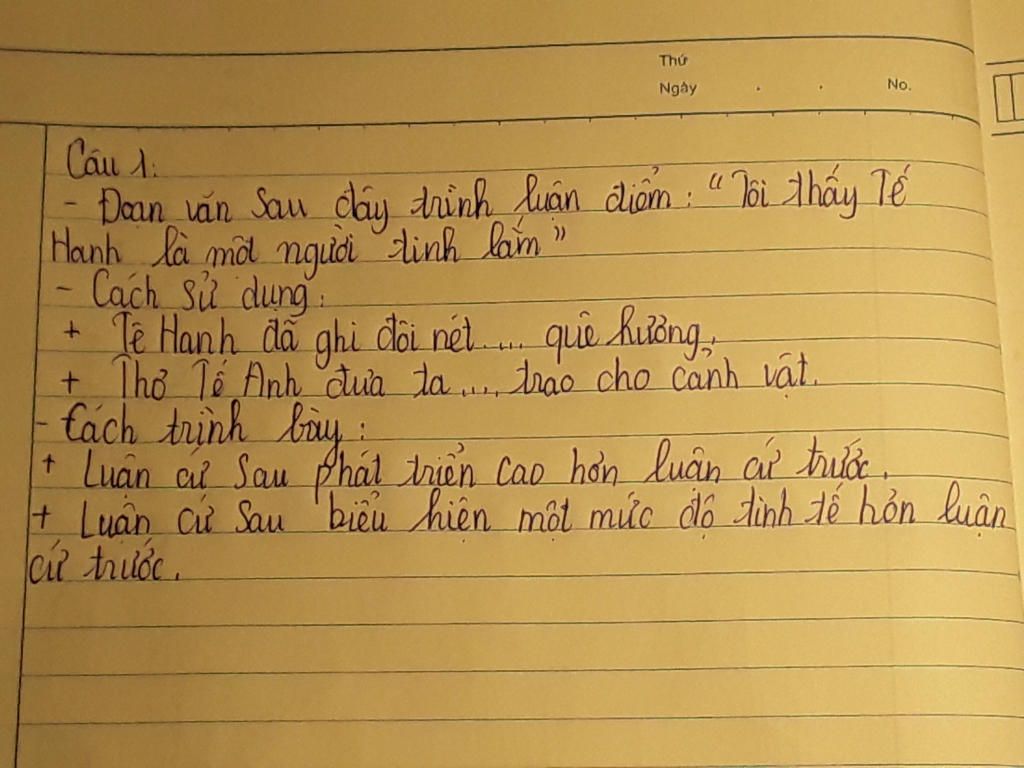 Thứ
Ngày . . No.
Câu 1:
- Đoạn văn sau đây trình luận điểm: "Tôi thấy Tế
Hanh là một người tinh lắm"
- Cách sử dụng:
+ Tế Hanh đã ghi đôi nét.... quê hương.
+ Thơ Tế Anh đưa ta.... trao cho cảnh vật.
- Cách trình bày:
+ Luận cứ sau phát triển cao hơn luận cứ trước.
+ Luận cứ sau biểu hiện một mức độ tình tế hơn luận
cứ trước.